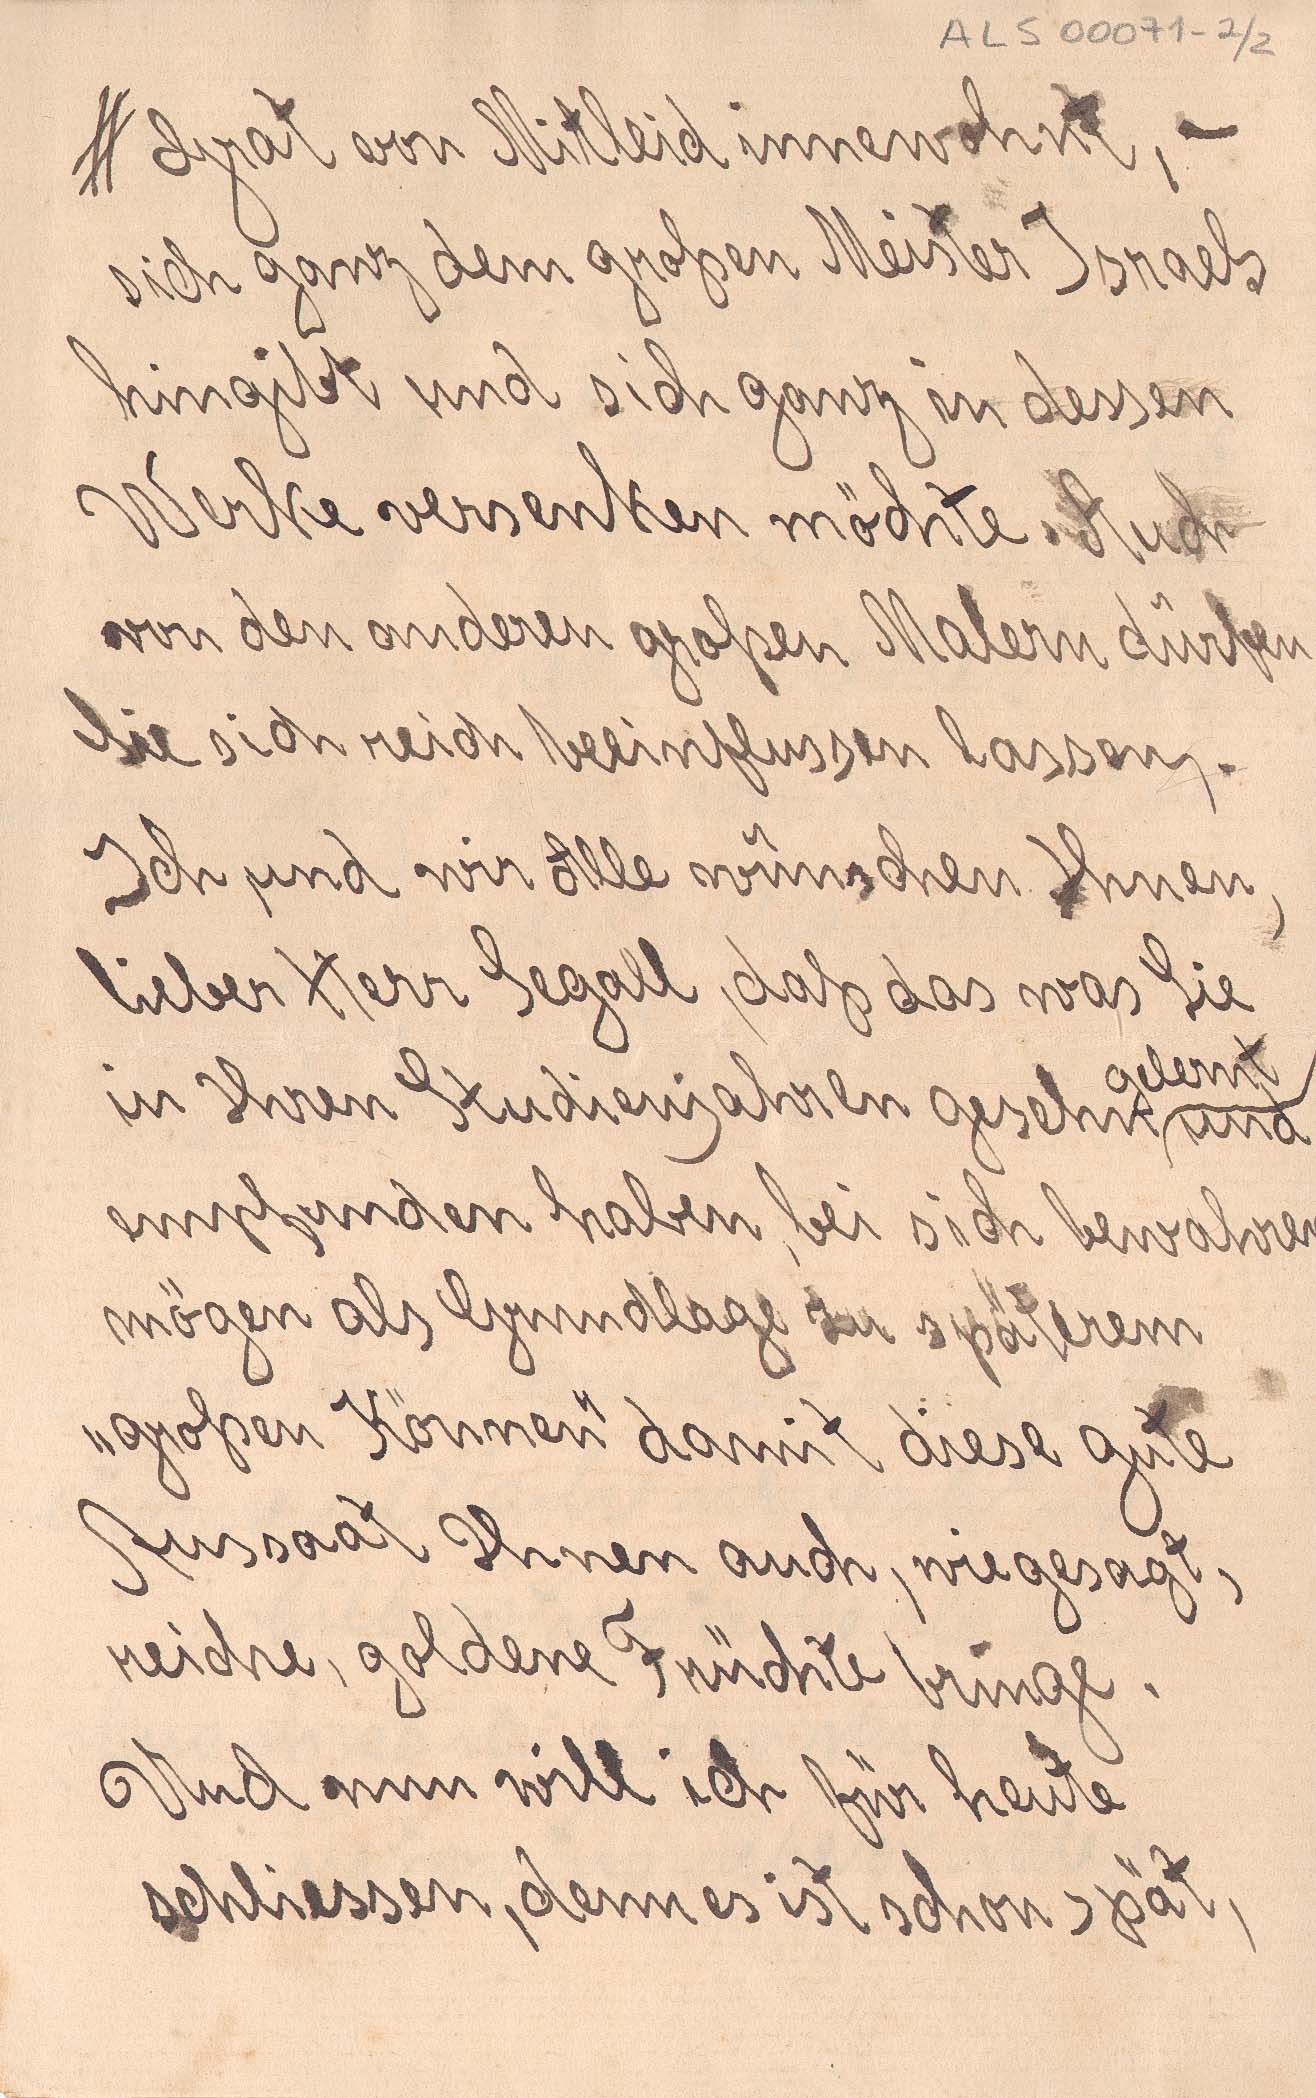 ALS 00071-2/2
# Grat von Mitleid innewohnt, -
sich ganz dem großen Meister Israels
hingibt und sich ganz in dessen
Werke versenken möchte. Auch
von den anderen großen Malern dürfen
Sie sich reich beeinflussen lassen.
Ich und wir Alle wünschen Ihnen,
lieber Herr Segall, daß das was Sie
gelernt
in Ihren Studienjahren gesehn und
empfunden haben, bei sich bewahren
mögen als Grundlage zu späterem
„großen Können" damit diese gute
Aussaat Ihnen auch, wie gesagt,
reiche, goldene Früchte bringe.
Und nun will ich für heute
schliessen, denn es ist schon spät,